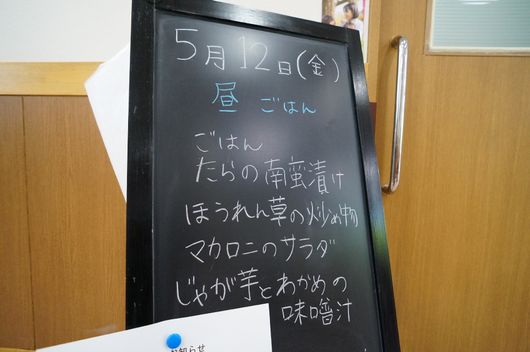 5月12日(金)
昼 ごはん
ごはん
たらの南蛮漬け
ほうれん草の炒め物
マカロニのサラダ
じゃが芋とわかめの
味噌汁
お知らせ